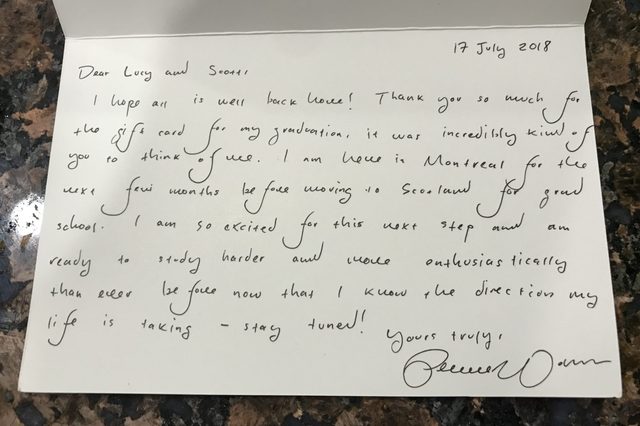 17 July 2018
Dear Lucy and Scott,
I hope all is well back home! Thank you so much for
the gift card for my graduation, it was incredibly kind of
you to think of me. I am here in Montreal for the
next few months before moving to Scotland for grad
school. I am so excited for this next step and am
ready to study harder and more enthusiastically
than ever before now that I know the direction my
life is taking – stay tuned!
Yours truly,